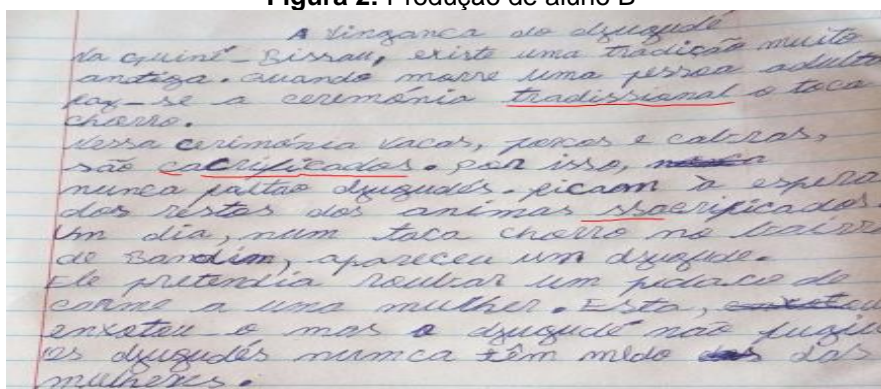 Figura 2. Produção de aluno B
A vingança do djugudé
Na Guiné-Bissau, existe uma tradição muito
antiga. Quando morre uma pessoa adulta
faz-se a ceremónia tradissional o toca
chorro.
Nessa cerimónia vacas, porcos e cabras,
são cacrificados. Por isso,
nunca faltão djugudés. ficam à espera
dos restos dos animas ssacrificados.
Um dia, num toca chorro no bairro
de Bandim, apareceu um djugude.
Ele pretendia roubar um pedaco de
carne a uma mulher. Esta,
enxotou-o mas o djugudé não fugiu
os djugudés numca têm medo das
mulheres.